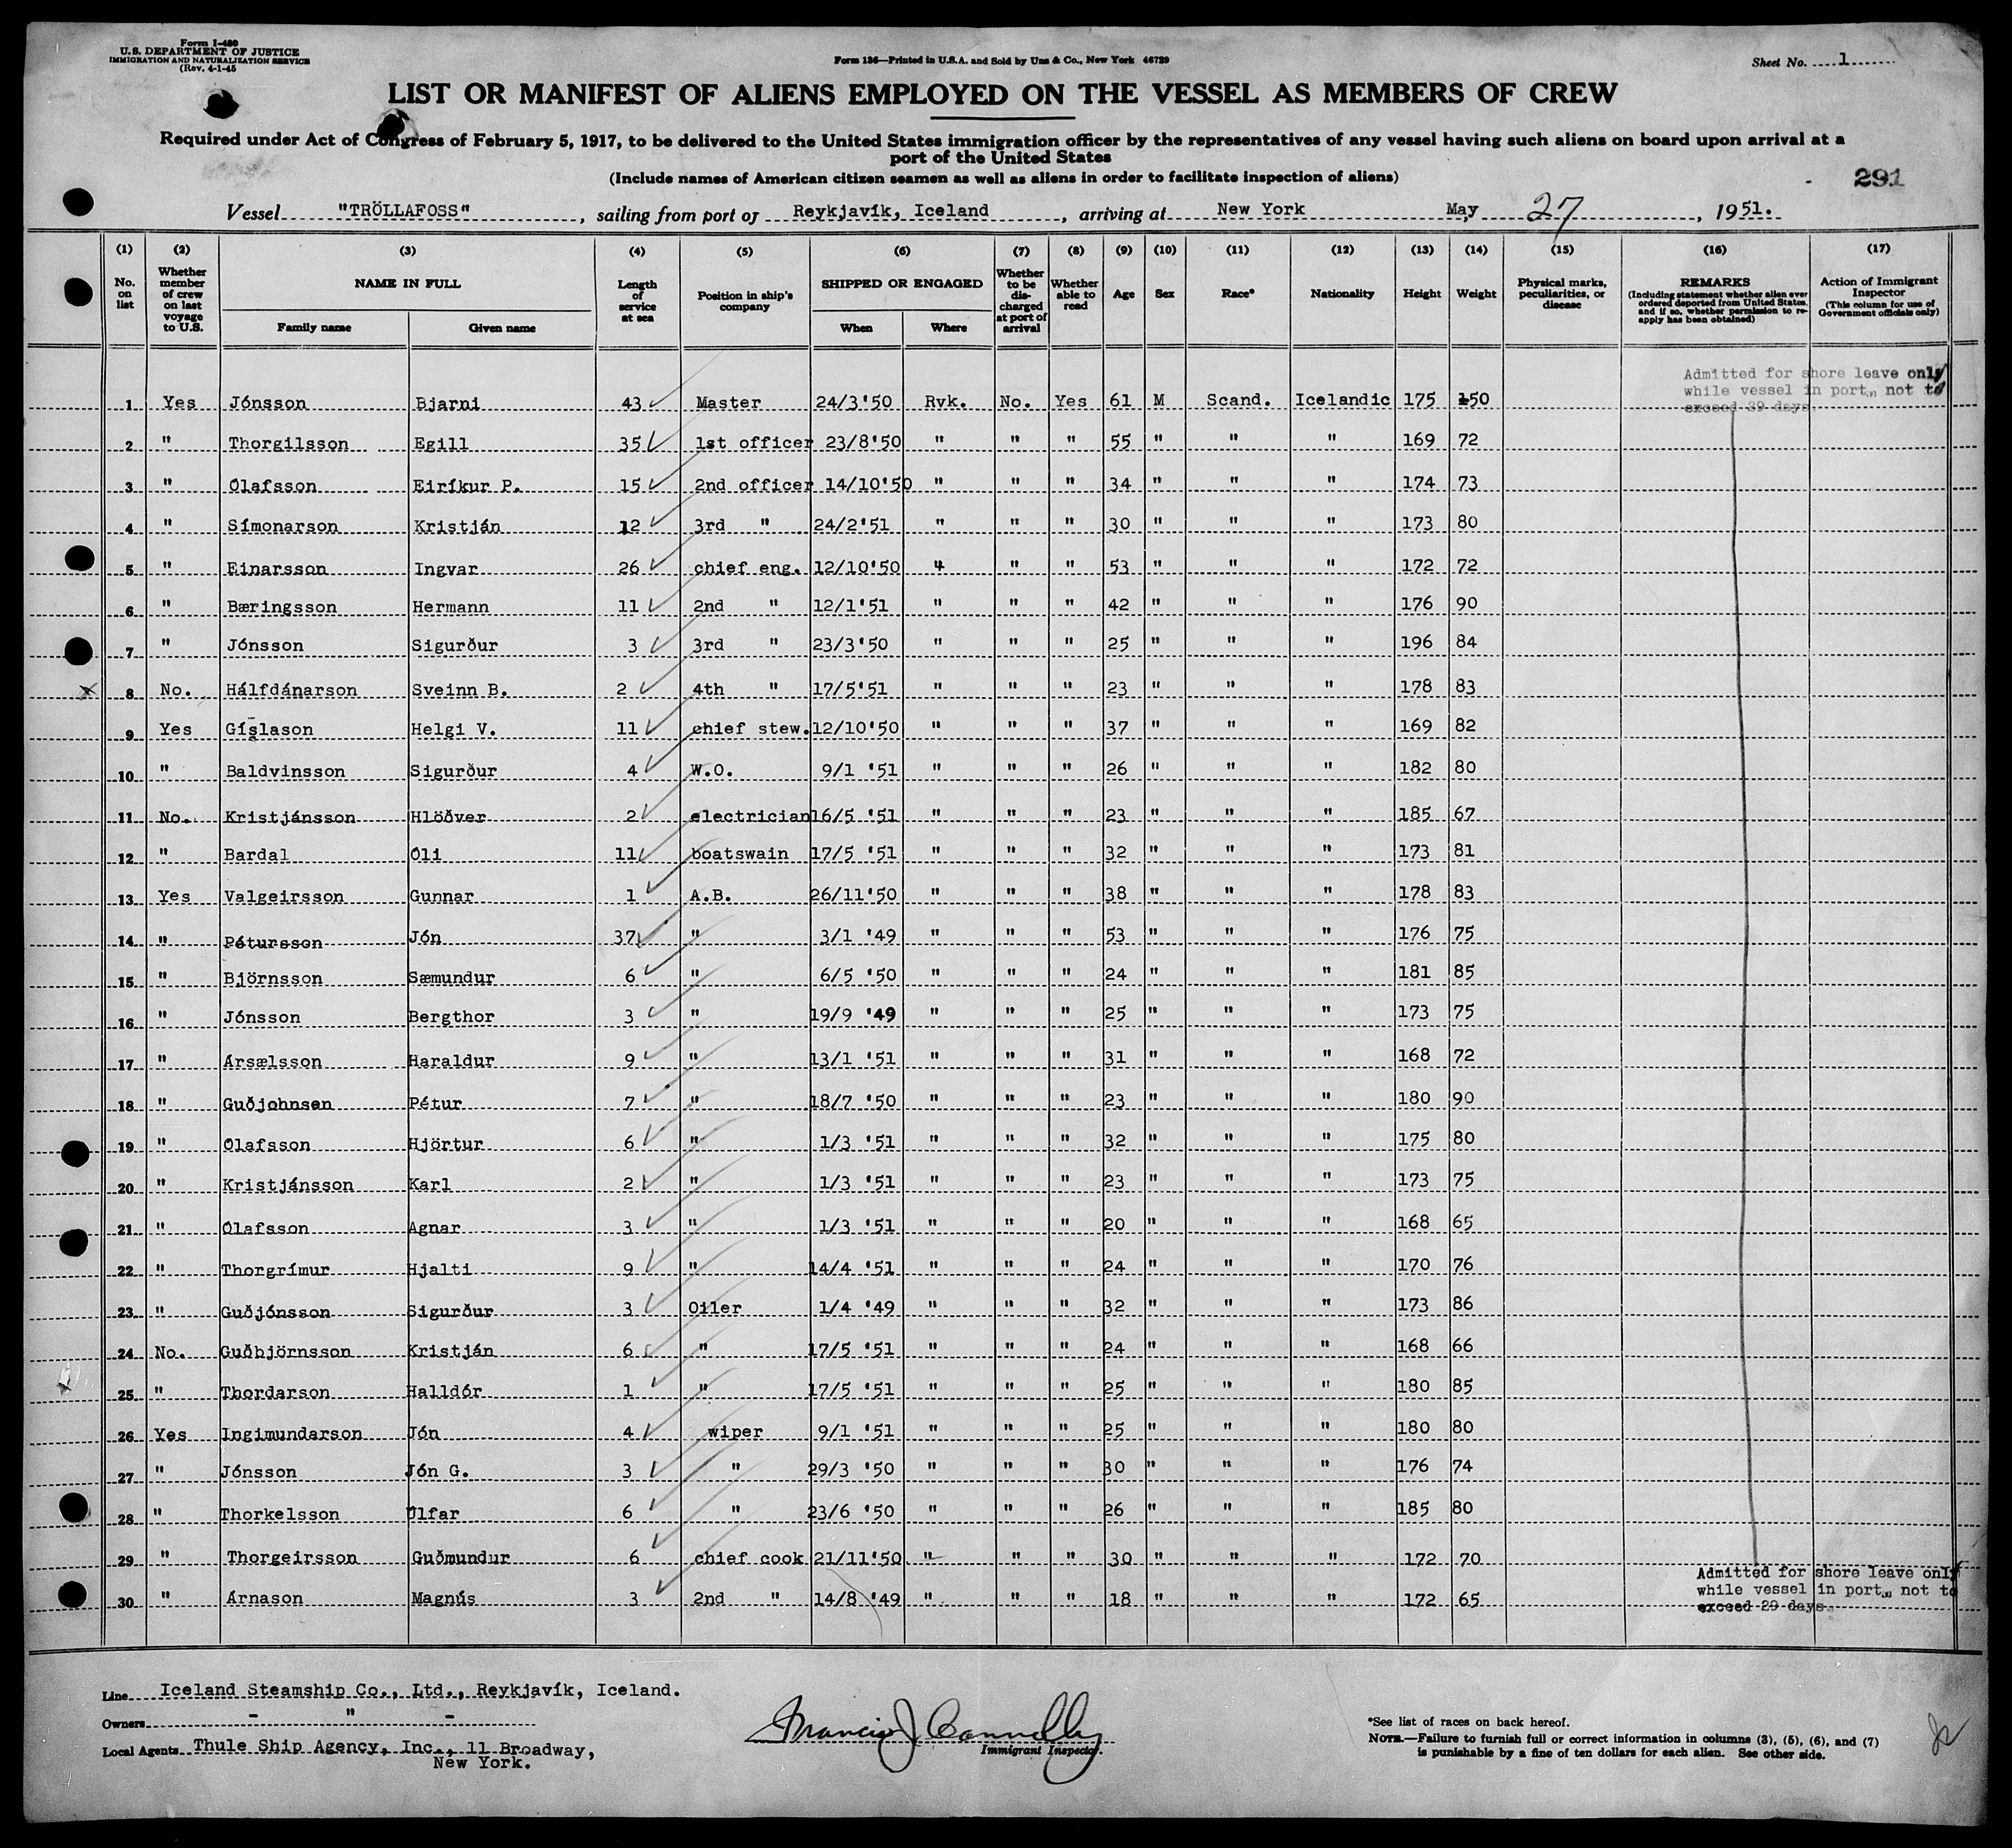 Form I-480
U.S. DEPARTMENT OF JUSTICE
IMMIGRATION AND NATURALIZATION SERVICE
(Rev. 4-1-45
Form 136—Printed in U.S.A. and Sold by Unz & Co., New York 46729
Sheet No. 1
LIST OR MANIFEST OF ALIENS EMPLOYED ON THE VESSEL AS MEMBERS OF CREW
Required under Act of Congress of February 5, 1917, to be delivered to the United States immigration officer by the representatives of any vessel having such aliens on board upon arrival at a
port of the United States
(Include names of American citizen seamen as well as aliens in order to facilitate inspection of aliens)
291
Vessel "TRÖLLAFOSS", sailing from port of Reykjavík, Iceland, arriving at New York May 27, 1951.
(1) (2) (3) (4) (5) (6) (7) (8) (9) (10) (11) (12) (13) (14) (15) (16) (17)
No. on list
Whether member of crew on last voyage to U.S.
NAME IN FULL
Family name
Given name
Length of service at sea
Position in ship's company
SHIPPED OR ENGAGED
When
Where
Whether to be discharged at port of arrival
Whether able to read
Age
Sex
Race*
Nationality
Height
Weight
Physical marks, peculiarities, or disease
REMARKS
(Including statement whether alien ever ordered deported from United States, and if so, whether permission to reapply has been obtained)
Action of Immigrant Inspector
(This column for use of Government officials only)
Admitted for shore leave only
while vessel in port, not to
exceed 29 days.
1 Yes Jónsson Bjarni 43 Master 24/3'50 Rvk. No. Yes 61 M Scand. Icelandic 175 150
2 " Thorgilsson Egill 35 1st officer 23/8'50 " " " 55 " " " 169 72
3 " Ólafsson Eiríkur P. 15 2nd officer 14/10'50 " " " 34 " " " 174 73
4 " Símonarson Kristján 12 3rd " 24/2'51 " " " 30 " " " 173 80
5 " Einarsson Ingvar 26 chief eng. 12/10'50 " " " 53 " " " 172 72
6 " Bæringsson Hermann 11 2nd " 12/1'51 " " " 42 " " " 176 90
7 " Jónsson Sigurður 3 3rd " 23/3'50 " " " 25 " " " 196 84
8 No. Hálfdánarson Sveinn B. 2 4th " 17/5'51 " " " 23 " " " 178 83
9 Yes Gíslason Helgi V. 11 chief stew. 12/10'50 " " " 37 " " " 169 82
10 " Baldvinsson Sigurður 4 W.O. 9/1 '51 " " " 26 " " " 182 80
11 No. Kristjánsson Hlöðver 2 electrician 16/5 '51 " " " 23 " " " 185 67
12 " Bardal Óli 11 boatswain 17/5 '51 " " " 32 " " " 173 81
13 Yes Valgeirsson Gunnar 1 A.B. 26/11'50 " " " 38 " " " 178 83
14 " Pétursson Jón 37 " 3/1 '49 " " " 53 " " " 176 75
15 " Björnsson Sæmundur 6 " 6/5 '50 " " " 24 " " " 181 85
16 " Jónsson Bergthor 3 " 19/9 '49 " " " 25 " " " 173 75
17 " Ársælsson Haraldur 9 " 13/1 '51 " " " 31 " " " 168 72
18 " Guðjohnsen Pétur 7 " 18/7 '50 " " " 23 " " " 180 90
19 " Ólafsson Hjörtur 6 " 1/3 '51 " " " 32 " " " 175 80
20 " Kristjánsson Karl 2 " 1/3 '51 " " " 23 " " " 173 75
21 " Ólafsson Agnar 3 " 1/3 '51 " " " 20 " " " 168 65
22 " Thorgrímur Hjalti 9 " 14/4 '51 " " " 24 " " " 170 76
23 " Guðjónsson Sigurður 3 Oiler 1/4 '49 " " " 32 " " " 173 86
24 No. Guðbjörnsson Kristján 6 " 17/5 '51 " " " 24 " " " 168 66
25 " Thordarson Halldór 1 " 17/5 '51 " " " 25 " " " 180 85
26 Yes Ingimundarson Jón 4 wiper 9/1 '51 " " " 25 " " " 180 80
27 " Jónsson Jón G. 3 " 29/3 '50 " " " 30 " " " 176 74
28 " Thorkelsson Úlfar 6 " 23/6 '50 " " " 26 " " " 185 80
29 " Thorgeirsson Guðmundur 6 chief cook 21/11'50 " " " 30 " " " 172 70
30 " Árnason Magnús 3 2nd " 14/8 '49 " " " 18 " " " 172 65
Admitted for shore leave only
while vessel in port, not to
exceed 29 days.
Line Iceland Steamship Co., Ltd., Reykjavík, Iceland.
Owners - " -
Local Agents Thule Ship Agency, Inc., 11 Broadway,
New York.
Francis J Connolly
Immigrant Inspector.
*See list of races on back hereof.
NOTE.—Failure to furnish full or correct information in columns (3), (5), (6), and (7)
is punishable by a fine of ten dollars for each alien. See other side.